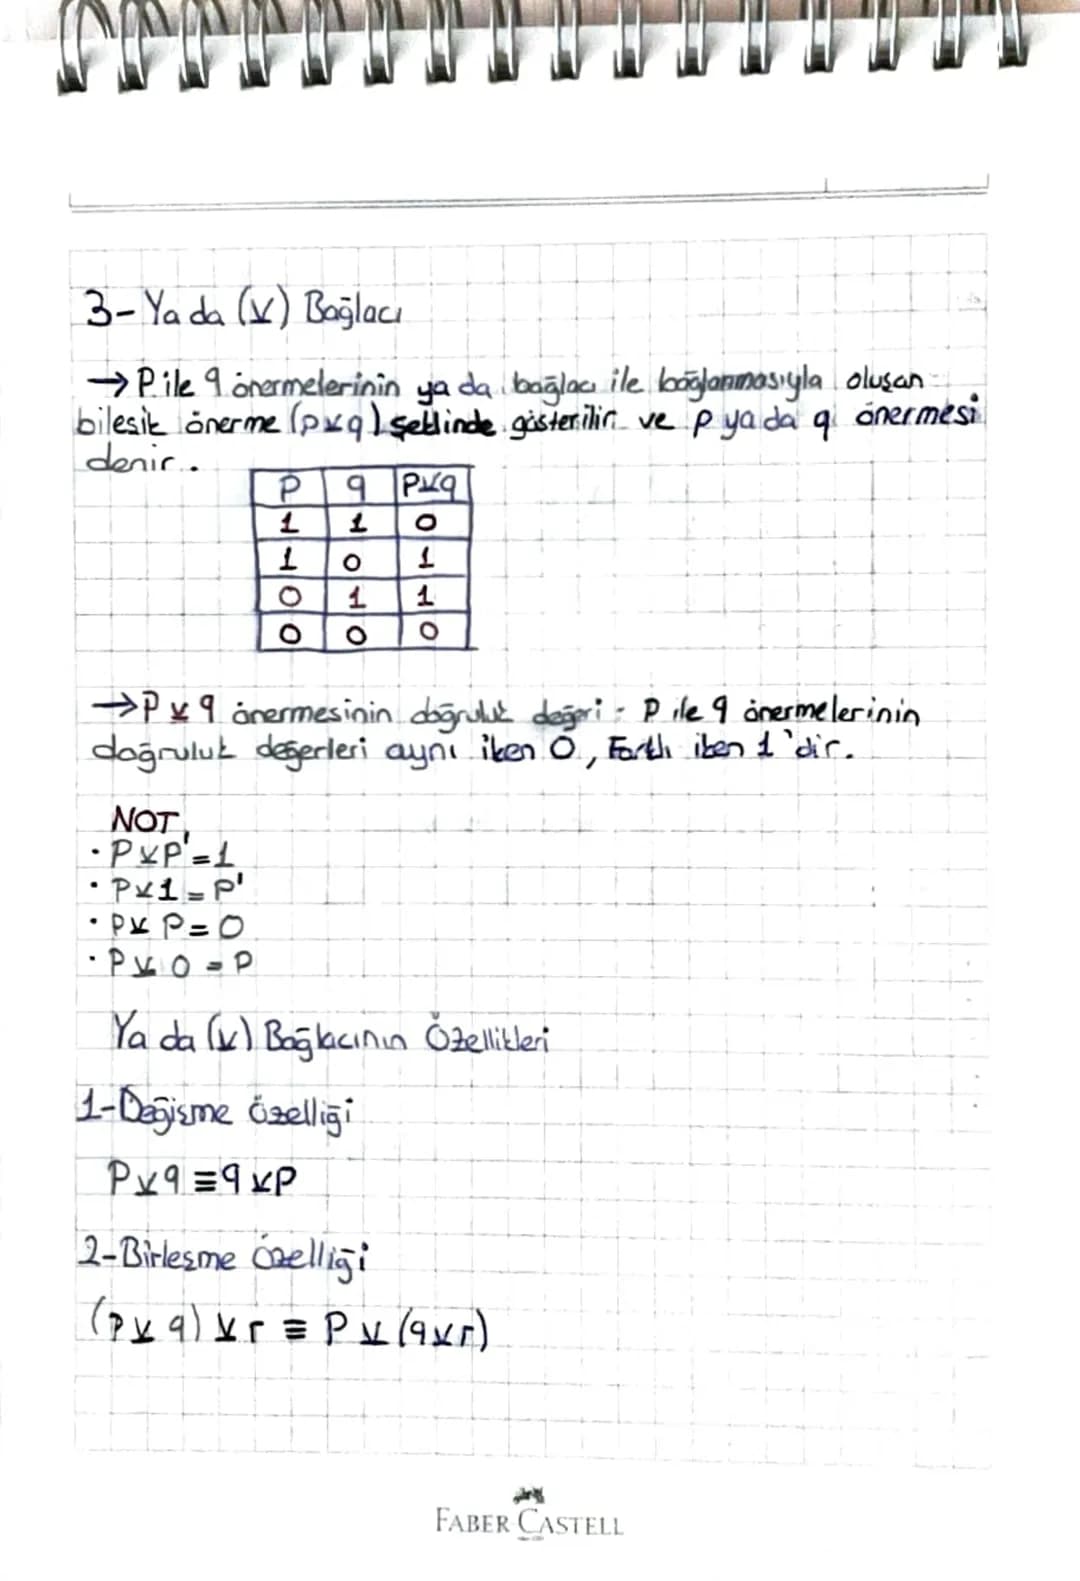 3- Ya da (⊻) Bağlacı
→ P ile q önermelerinin ya da bağlacı ile bağlanmasıyla oluşan
bileşik önerme (p⊻q) şeklinde gösterilir ve p ya da q önermesi
denir.
P q P⊻q
1 1 0
1 0 1
0 1 1
0 0 0
→ P ⊻ q önermesinin doğruluk değeri - P ile q önermelerinin
doğruluk değerleri aynı iken 0, Farklı iken 1'dir.
NOT,
• P⊻P'=1
• P⊻1=P'
• P⊻P=0
• P⊻0=P
Ya da (⊻) Bağlacının Özellikleri
1-Değişme özelliği
P⊻q≡q⊻P
2-Birleşme özelliği
(P⊻q)⊻r≡P⊻(q⊻r)
FABER-CASTELL